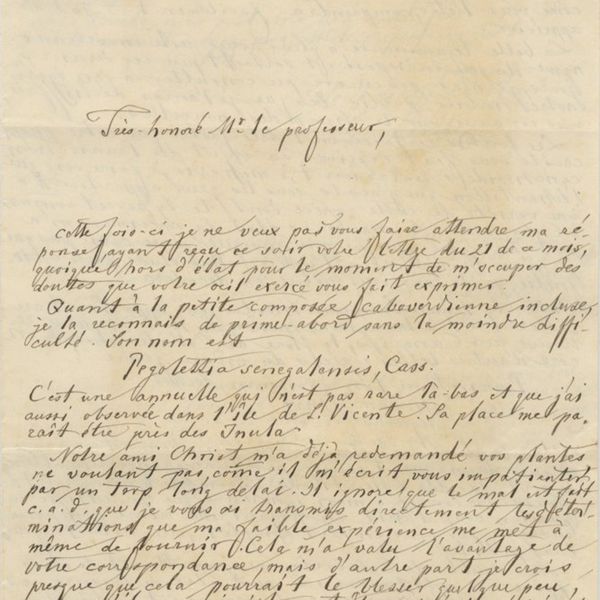 Très-honoré Mr le professeur,
cette fois-ci je ne veux pas vous faire attendre ma ré-
ponse, ayant reçu ce soir votre lettre du 21 de ce mois,
quoique hors d'état pour le moment de m'occuper des
doutes que votre œil exercé vous fait exprimer.
Quant à la petite composée caboverdienne incluse,
je la reconnais de prime-abord sans la moindre diffi-
culté. Son nom est
Pegolettia senegalensis, Cass.
C'est une annuelle qui n'est pas rare là-bas et que j'ai
aussi observée dans l'île de S. Vicente. Sa place me pa-
raît être près des Inula.
Notre ami Christ m'a déjà redemandé vos plantes
ne voulant pas, come il m'écrit, vous impatienter
par un torp long delai. Il ignore que le mal est fait
c. a. d. que je vous ai transmis directement les déter-
minations que ma faible expérience me met à
même de fournir. Cela m'a valu l'avantage de
votre correspondance, mais d'autre part je crois
presque que cela pourrait le blesser quelque peu,